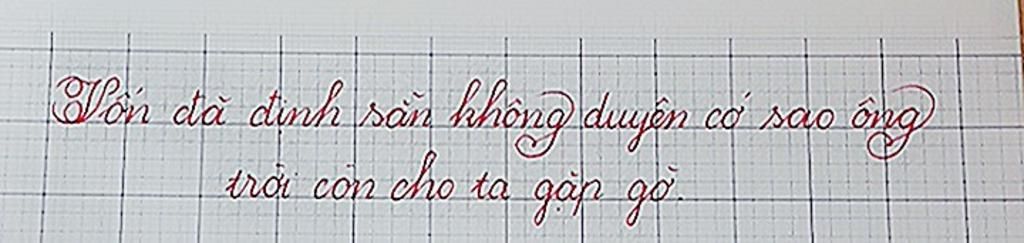 Vốn đã định sẵn không duyên cớ sao ông
trời còn cho ta gặp gỡ.